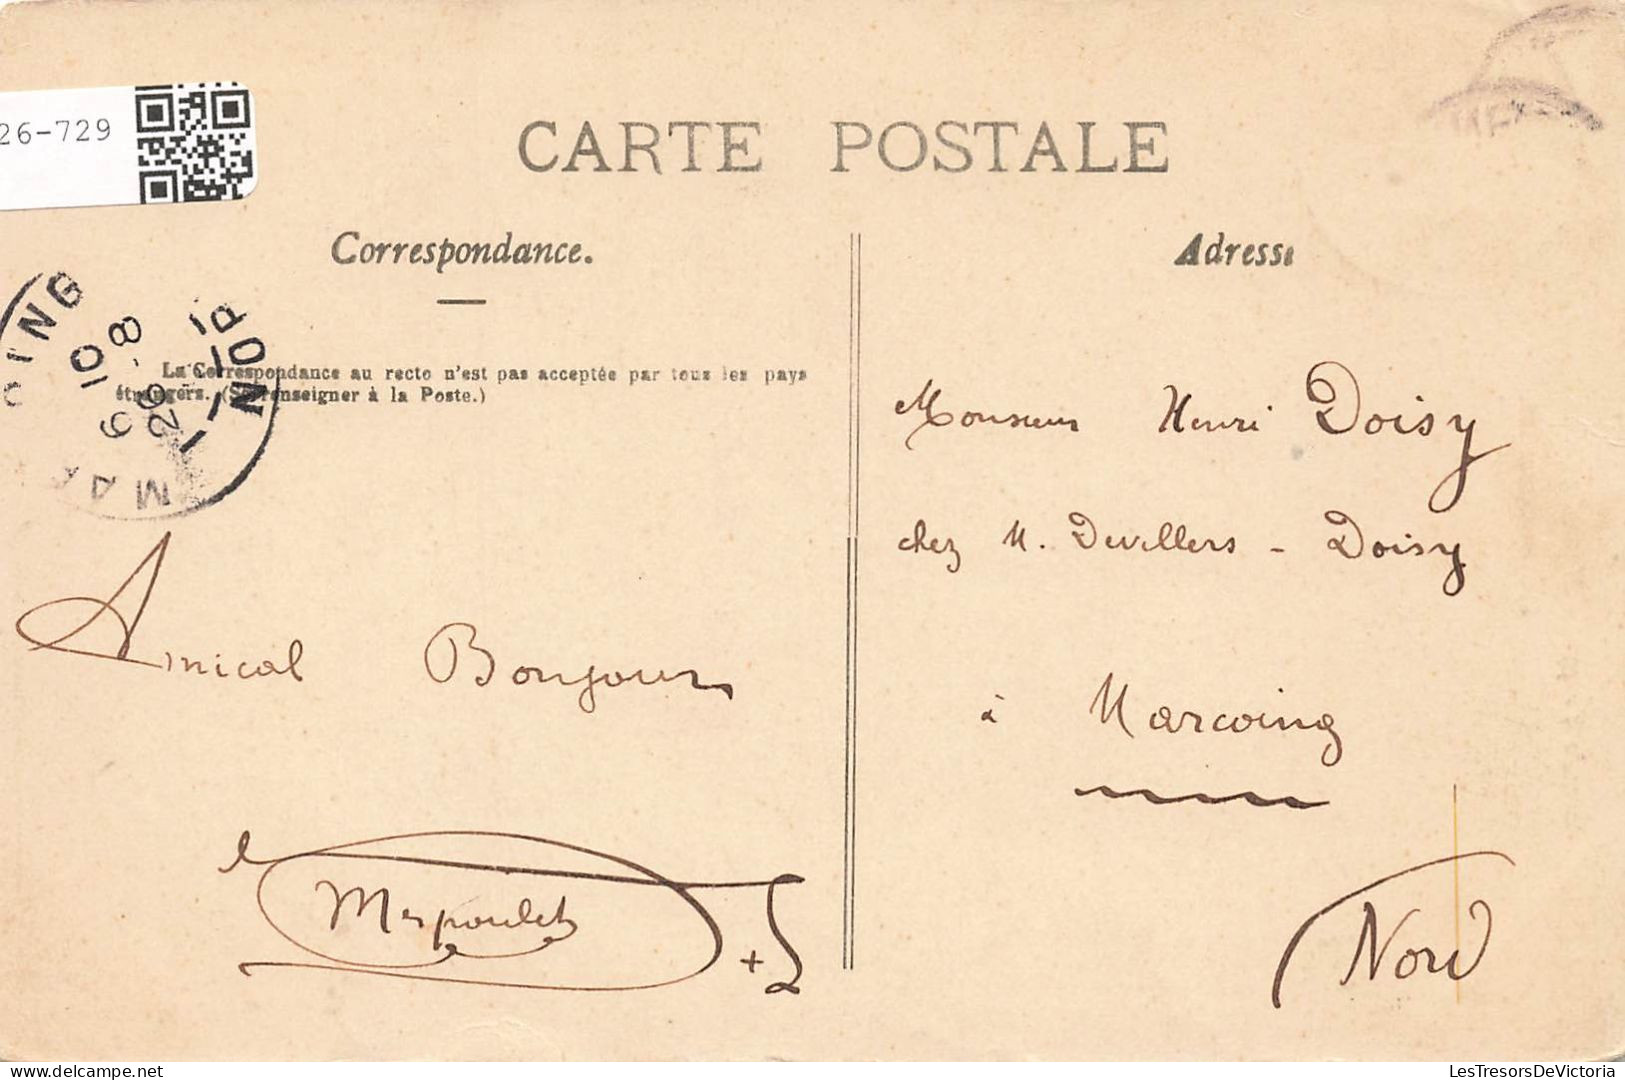 26-729
CARTE POSTALE
Correspondance.
Adresse
La Correspondance au recto n'est pas acceptée par tous les pays
étrangers. (Se renseigner à la Poste.)
10 26-8
NORD
Monsieur Henri Doisy
chez M. Devillers - Doisy
à Marcoing
Nord
Amical Bonjour
LesTresorsDeVictoria